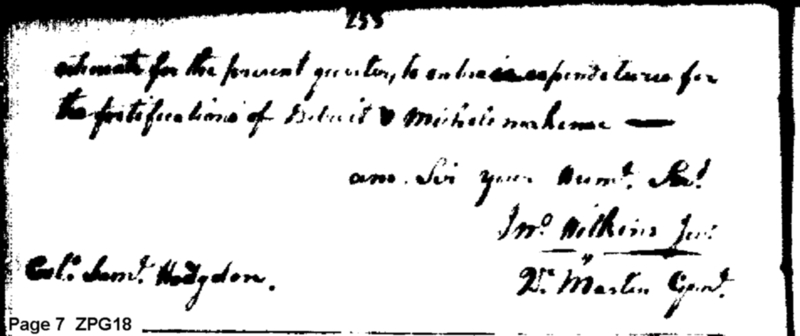 255
estimate for the present quarter, to embrace expenditures for
the fortifications of Detroit & Michilimackinac —
am Sir your Humt. Set.
Jno. Wilkins Jur.
Qr. Master Genl.
Colo. Saml. Hodgdon.
Page 7 ZPG18